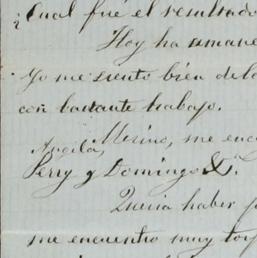 ¿Cual fué el resultado
Hoy ha amane
Yo me siento bien de lo
con bastante trabajo.
Angela, Merino, me enc
Perry y Domingo &.
Queria haber
me encuentro muy tor